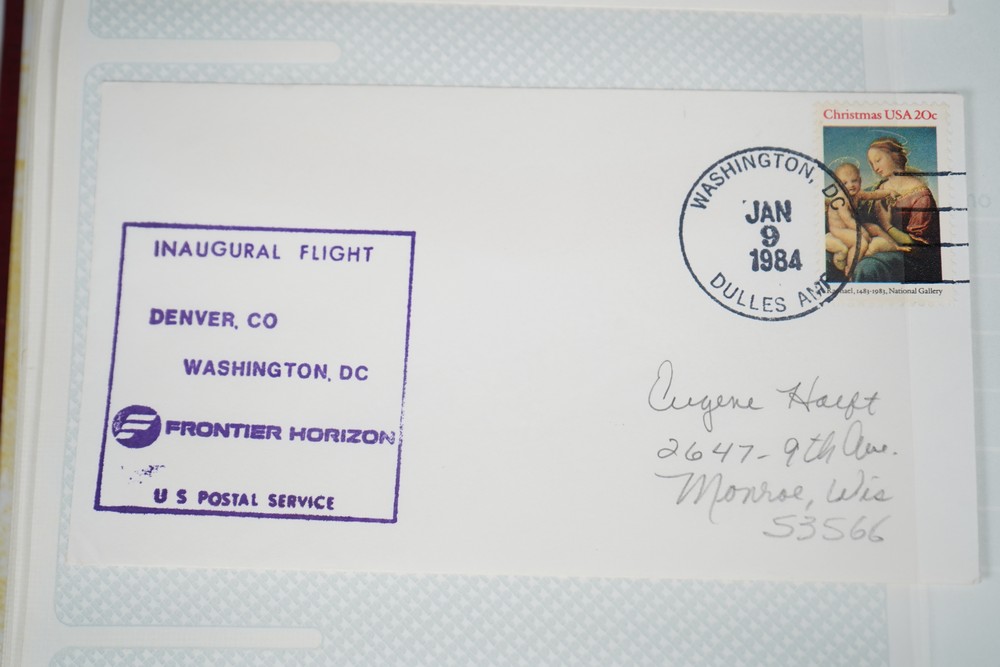 INAUGURAL FLIGHT
DENVER, CO
WASHINGTON, DC
FRONTIER HORIZON
U S POSTAL SERVICE
WASHINGTON, DC
JAN
9
1984
DULLES AMF
Christmas USA 20c
Raphael, 1483-1983, National Gallery
Eugene
2647-9th Ave.
Monroe, Wis
53566